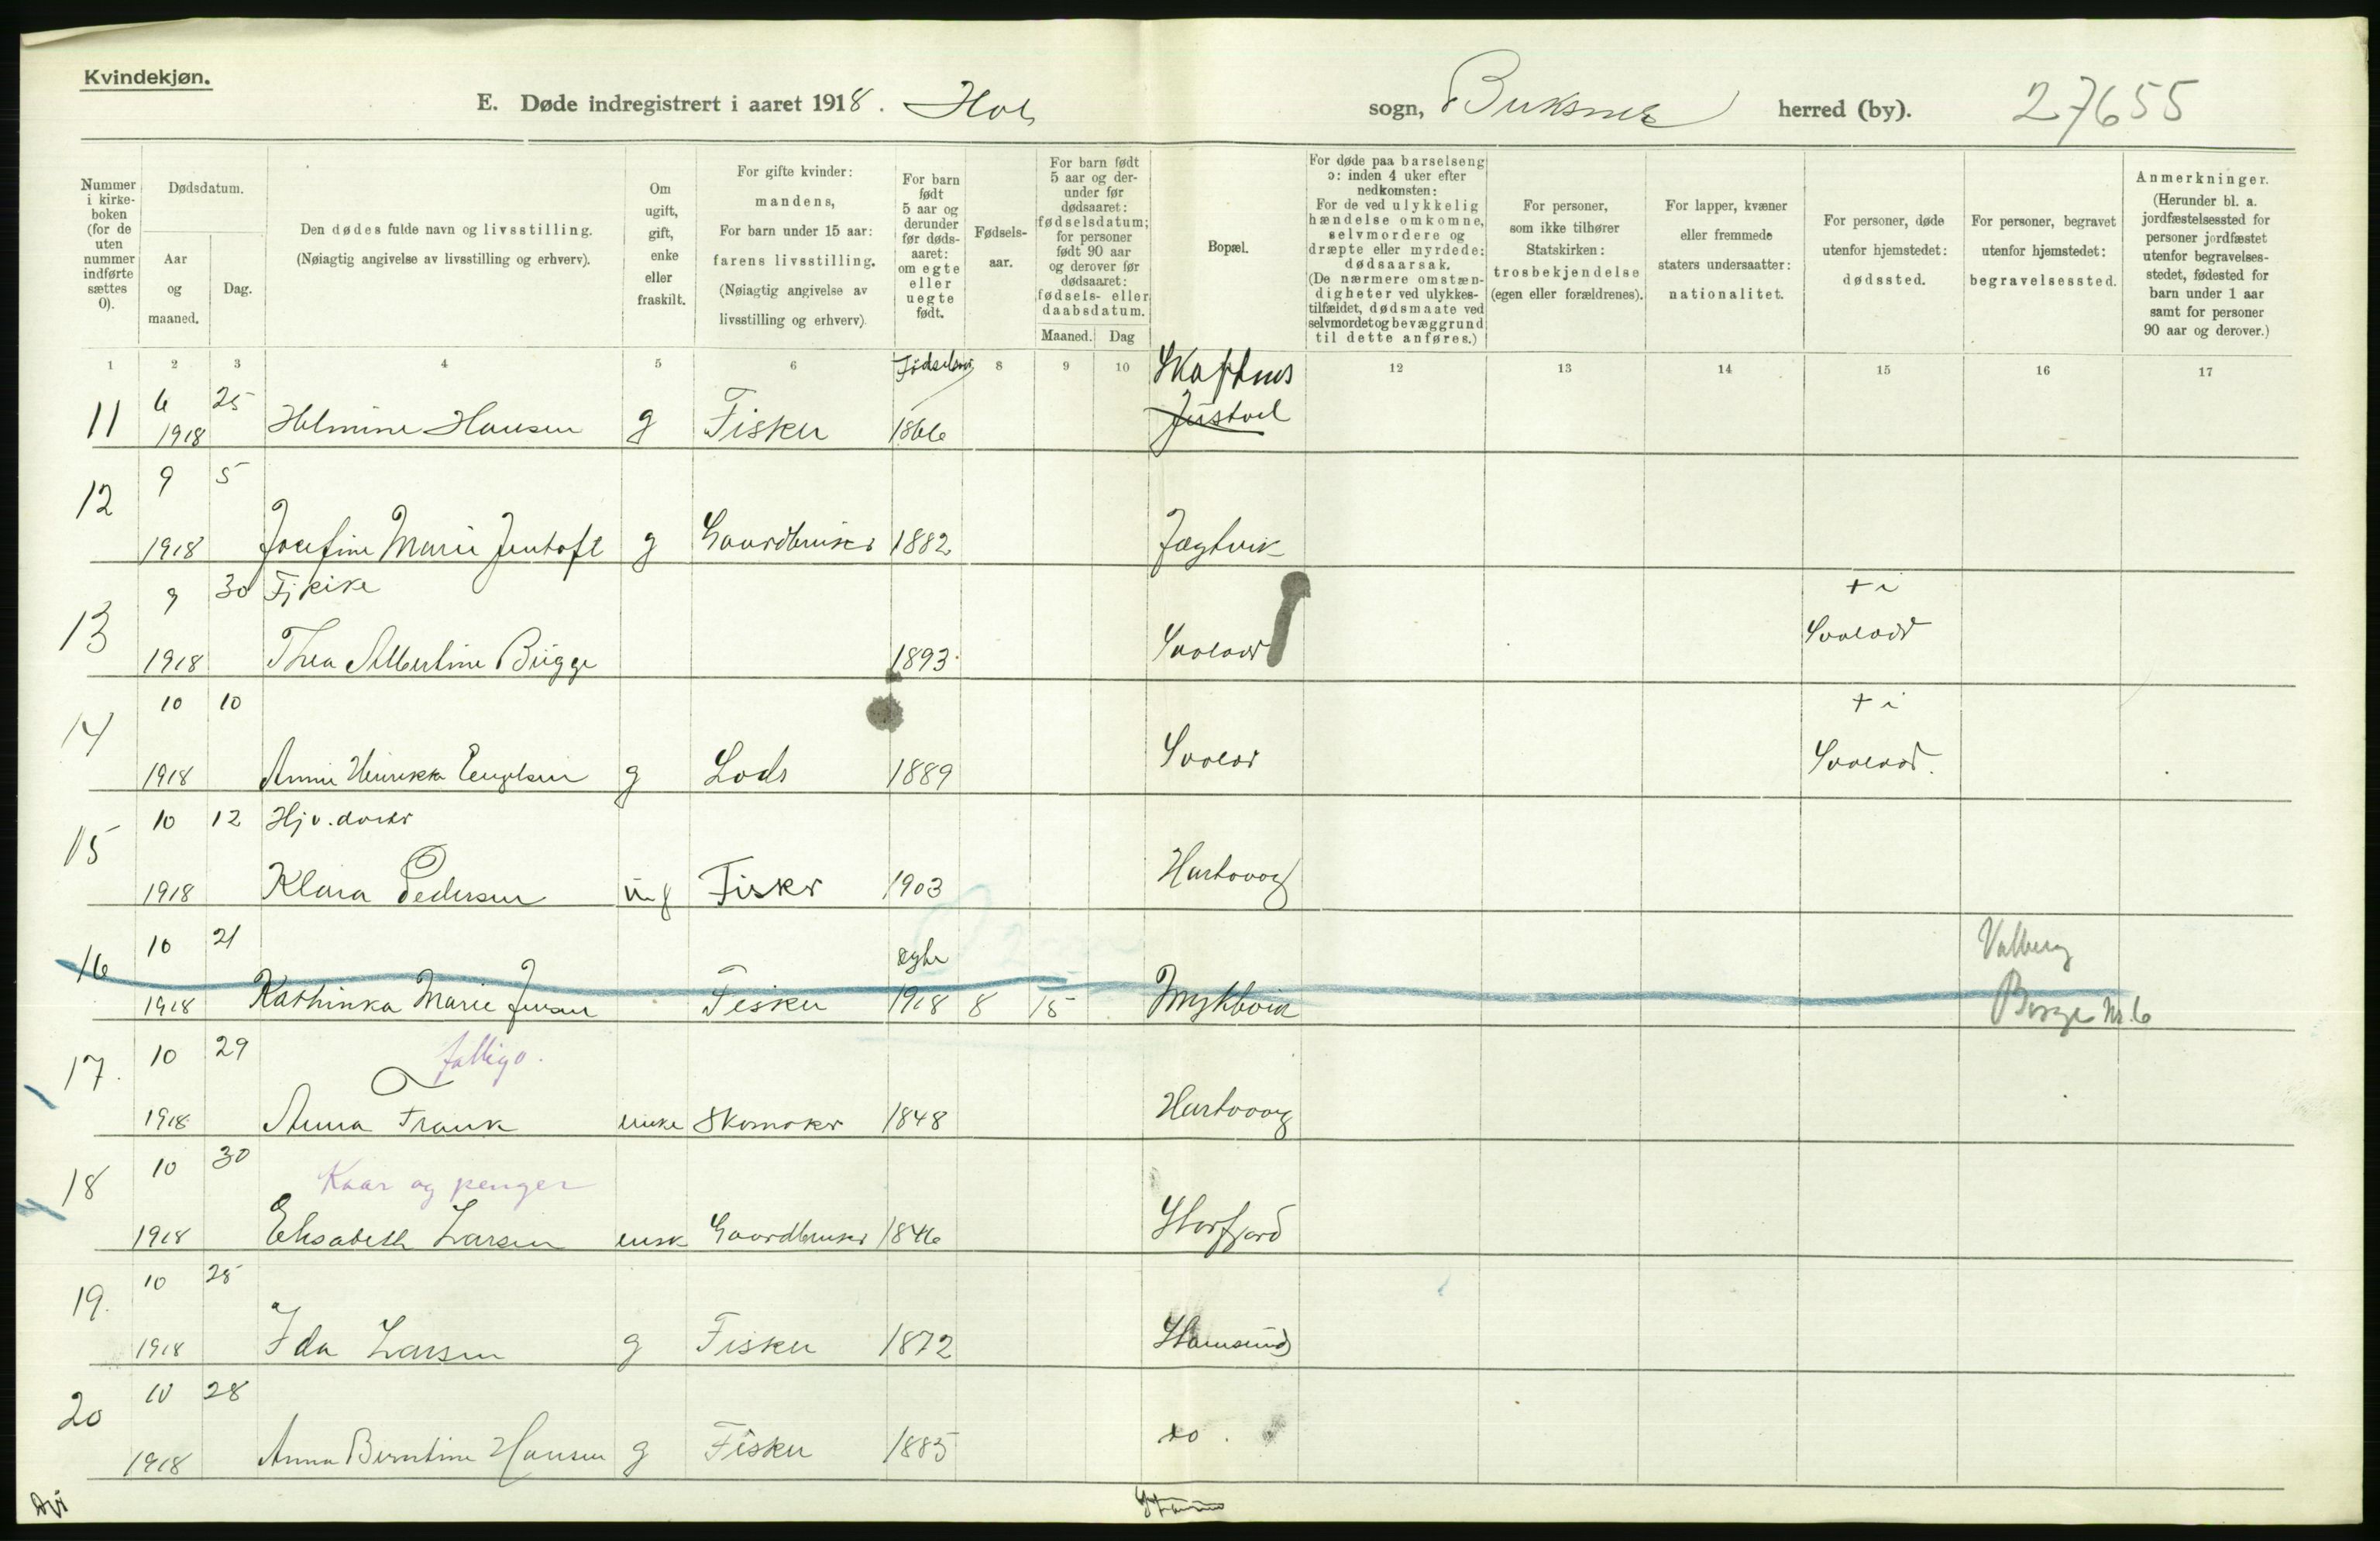 Kvindekjøn.
E. Døde indregistrert i aaret 1918. Hol sogn, Buksnes herred (by). 27655
Nummer i kirke-boken (for de uten nummer indførte sættes 0).
Dødsdatum.
Aar og maaned.
Dag.
Den dødes fulde navn og livsstilling.
(Nøiagtig angivelse av livsstilling og erhverv).
Om ugift, gift, enke eller fraskilt.
For gifte kvinder: mandens,
For barn under 15 aar: farens livsstilling.
(Nøiagtig angivelse av livsstilling og erhverv).
For barn født 5 aar og derunder før døds-aaret: om egte eller uegte født.
Fødsels-aar.
For barn født 5 aar og der-under før dødsaaret: fødselsdatum; for personer født 90 aar og derover før dødsaaret: fødsels- eller daabsdatum.
Maaned. Dag
Bopæl.
For døde paa barselseng ɔ: inden 4 uker efter nedkomsten:
For de ved ulykkelig hændelse omkomne, selvmordere og dræpte eller myrdede: dødsaarsak.
(De nærmere omstæn-digheter ved ulykkes-tilfældet, dødsmaate ved selvmordet og bevæggrund til dette anføres.)
For personer, som ikke tilhører Statskirken: trosbekjendelse (egen eller forældrenes).
For lapper, kvæner eller fremmede staters undersaatter: nationalitet.
For personer, døde utenfor hjemstedet: dødssted.
For personer, begravet utenfor hjemstedet: begravelsessted.
Anmerkninger.
(Herunder bl. a. jordfæstelsessted for personer jordfæstet utenfor begravelses-stedet, fødested for barn under 1 aar samt for personer 90 aar og derover.)
1 2 3 4 5 6 Fødselsaar 8 9 10 12 13 14 15 16 17
Skaftnes
11 6 25
1918 Helmine Hansen g Fisker 1866 Justad
12 9 5
1918 Josefine Marie Jentoft g Gaardbruker 1882 Jagtvik
13 9 30 Fj pike + i
1918 Thea Albertine Brigge 1893 Svolvær Svolvær
14 10 10 + i
1918 Anna Henrikka g Lods 1889 Svolvær Svolvær.
15 10 12 Hj v. datter
1918 Klara Pedersen ug Fisker 1903 Hartvaag
16 10 21 egte Valberg
1918 Kathinka Marie Jensen Fisker 1918 8 15 Mykbvik Borge Nr. 6
17. 10 29 fattigu.
1918 Anna Frank enke Skomaker 1848 Hartvaag
18 10 30 Kaar og penger
1918 Elisabeth Larsen enke Gaardbruker 1846 Storfjord
19. 10 25
1918 Ida Larsen g Fisker 1872 Stamsund
20 10 28
1918 Anna Berntine Hansen g Fisker 1885 do.